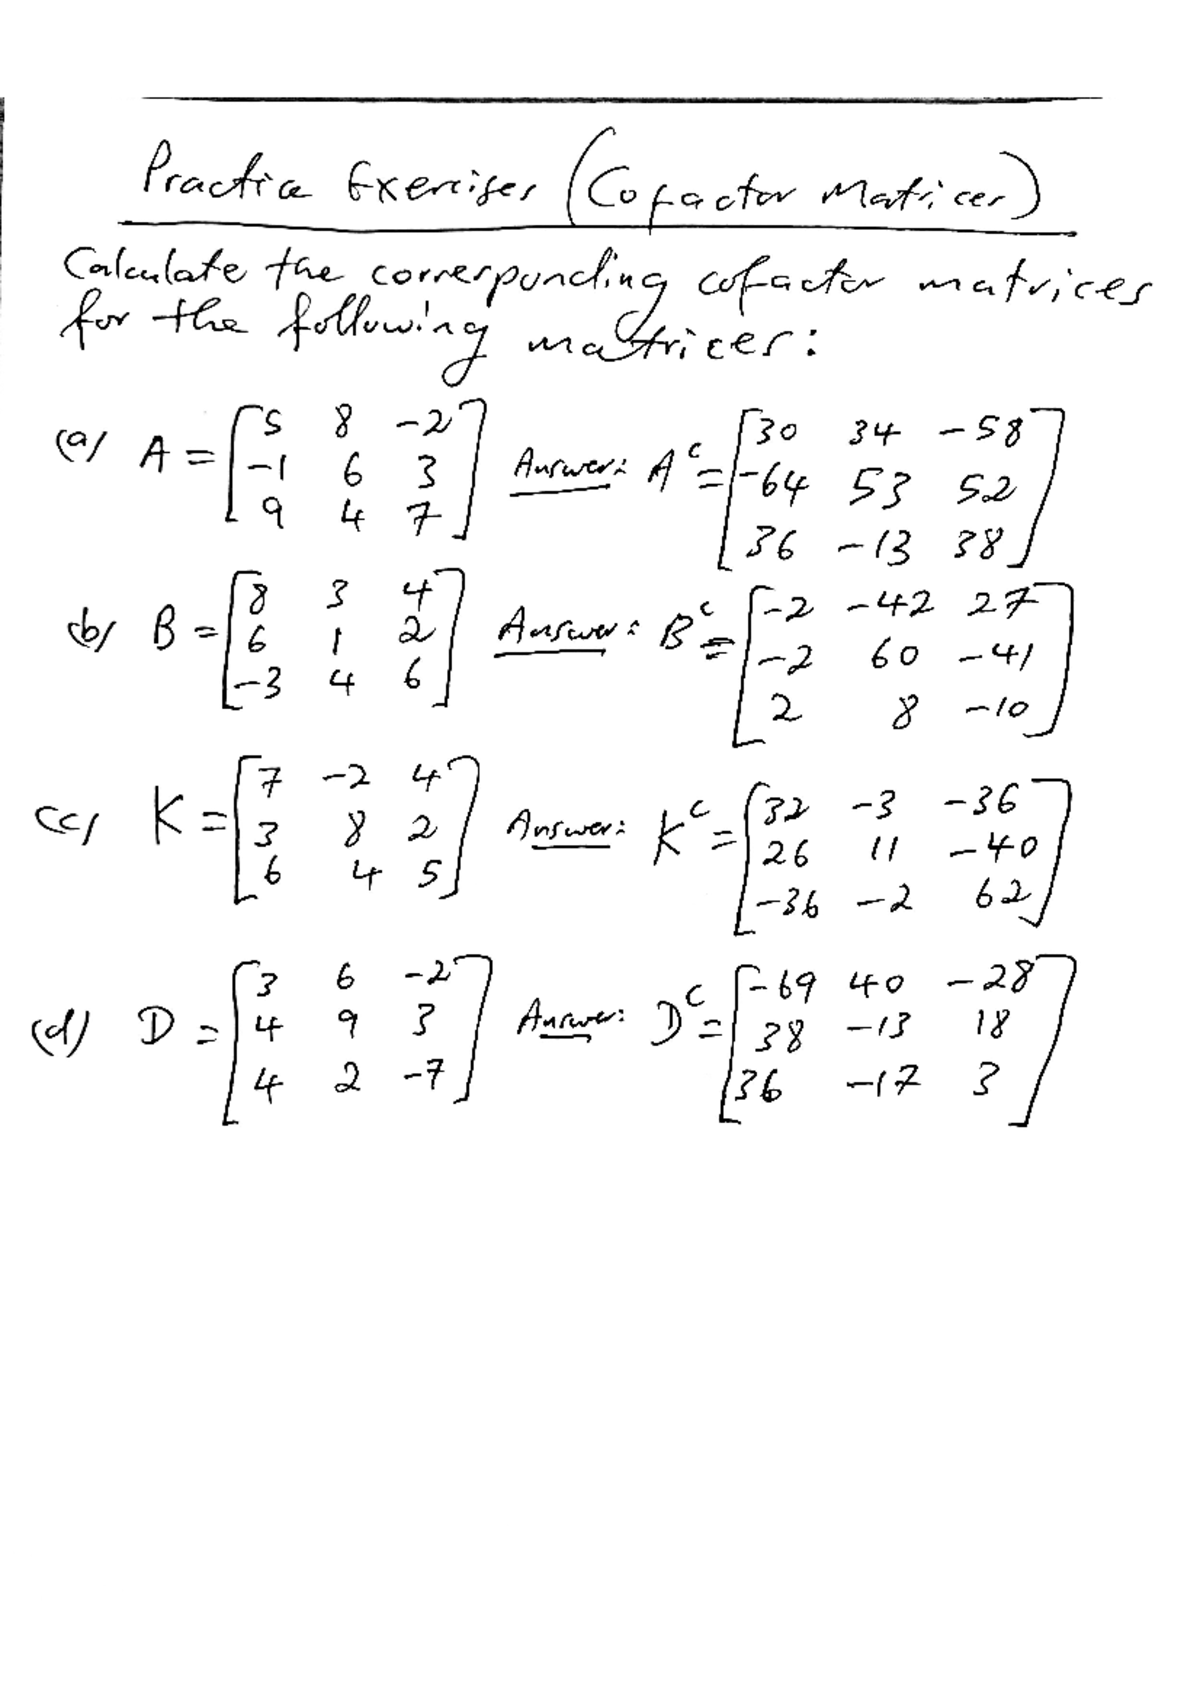 Practice Exercises (Cofactor Matrices)
Calculate the corresponding cofactor matrices
for the following matrices:
(a) A = [5 8 -2
-1 6 3
9 4 7] Answer: A^c = [30 34 -58
-64 53 52
36 -13 38]
(b) B = [8 3 4
6 1 2
-3 4 6] Answer: B^c = [-2 -42 27
-2 60 -41
2 8 -10]
(c) K = [7 -2 4
3 8 2
6 4 5] Answer: K^c = [32 -3 -36
26 11 -40
-36 -2 62]
(d) D = [3 6 -2
4 9 3
4 2 -7] Answer: D^c = [-69 40 -28
38 -13 18
36 -17 3]